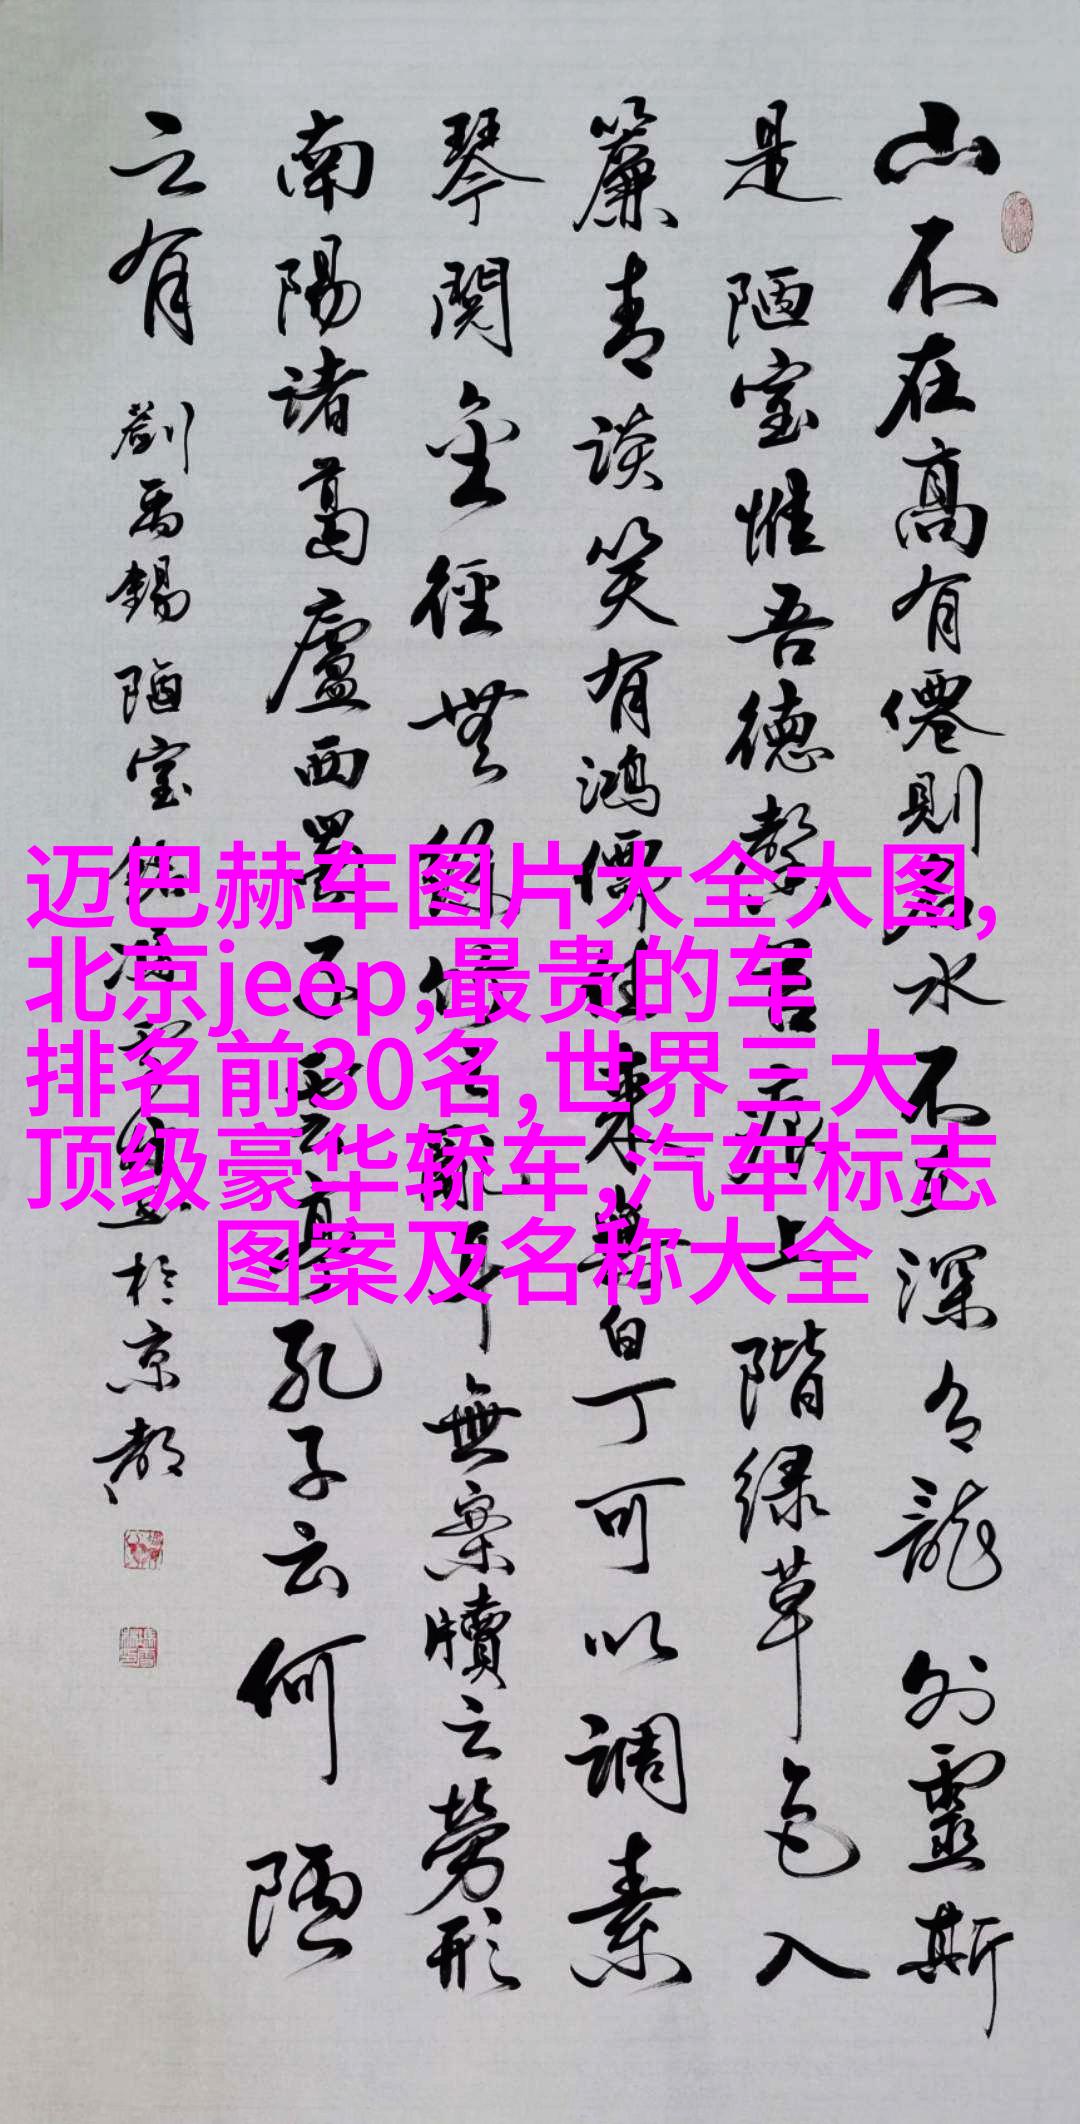 山不在高有僊則名水不在深有龍則靈斯
是陋室惟吾德馨苔痕上階緑草色入
簾青談笑有鴻儒往來無白丁可以調素
琴閱金徑無絲竹之亂耳無案牘之勞形
南陽諸葛廬西蜀子雲亭孔子云何陋
之有 劉禹錫陋室銘 於京都
迈巴赫车图片大全大图,
北京jeep,最贵的车
排名前30名,世界三大
顶级豪华轿车,汽车标志
图案及名称大全